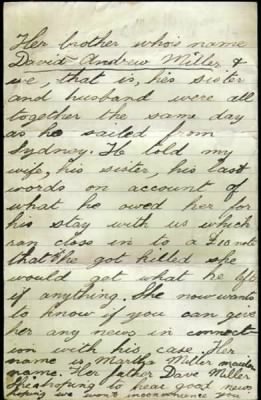 Her brother who's name
David Andrew Miller &
we, that is, his sister
and husband were all
together the same day
as he sailed from
Sydney. He told my
wife, his sister, his last
words on account of
what he owed her for
his stay with us which
ran close in to a £10 note
that if he got killed she
would get what he left
if anything. She now wants
to know if you can give
her any news in connect
ion with his case. Her
name is Martha Miller maiden
name. Her father Dave Miller
hoping to hear good news
hoping we won't inconvenience you